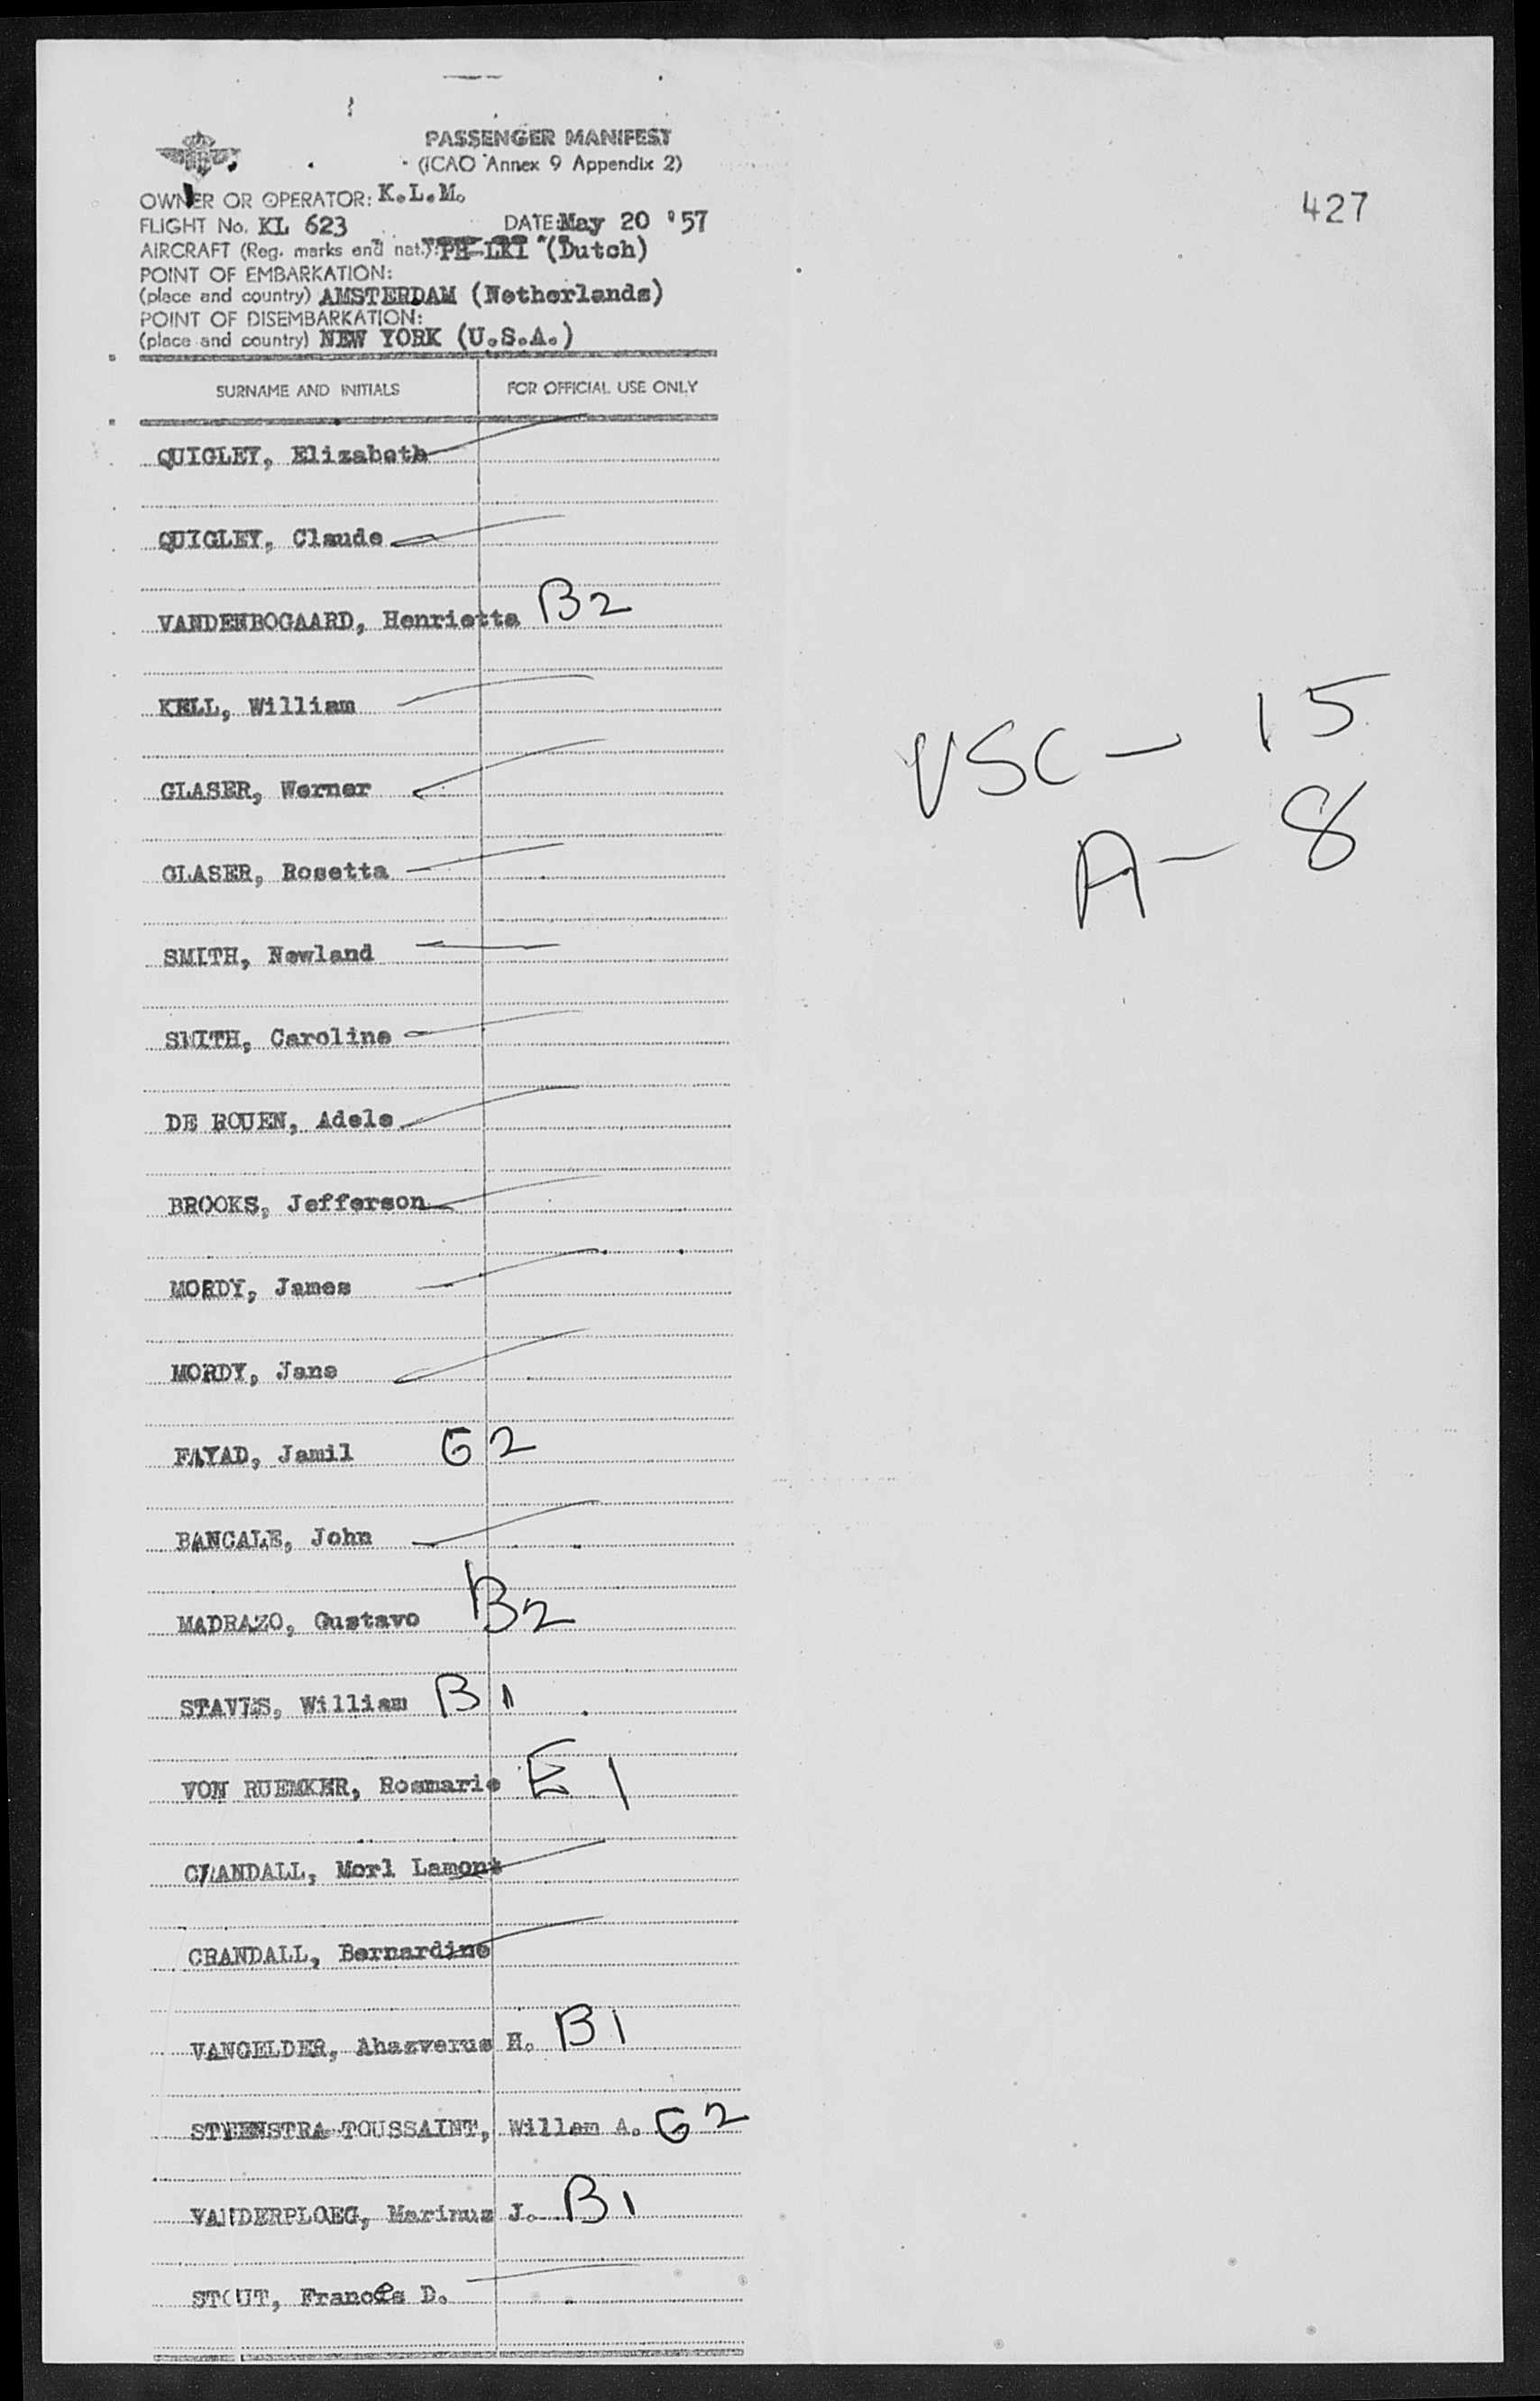 PASSENGER MANIFEST
(ICAO Annex 9 Appendix 2)
OWNER OR OPERATOR: K.L.M.
427
FLIGHT No. KL 623 DATE: May 20 '57
AIRCRAFT (Reg. marks and nat.): PH-LKI (Dutch)
POINT OF EMBARKATION:
(place and country) AMSTERDAM (Netherlands)
POINT OF DISEMBARKATION:
(place and country) NEW YORK (U.S.A.)
SURNAME AND INITIALS FOR OFFICIAL USE ONLY
QUIGLEY, Elizabeth
QUIGLEY, Claude
VANDENBOGAARD, Henrietta B2
KELL, William
USC - 15
GLASER, Werner
A - 8
GLASER, Rosetta
SMITH, Newland
SMITH, Caroline
DE ROUEN, Adele
BROOKS, Jefferson
MORDY, James
MORDY, Jane
FAYAD, Jamil G2
BANCALE, John
MADRAZO, Gustavo B2
STAVES, William B1
VON RUEMKER, Rosmarie E1
CRANDALL, Morl Lamont
CRANDALL, Bernardine
VANGELDER, Ahazverus H. B1
STEENSTRA-TOUSSAINT, Willem A. G2
VANDERPLOEG, Marinus J. B1
STOUT, Frances D.